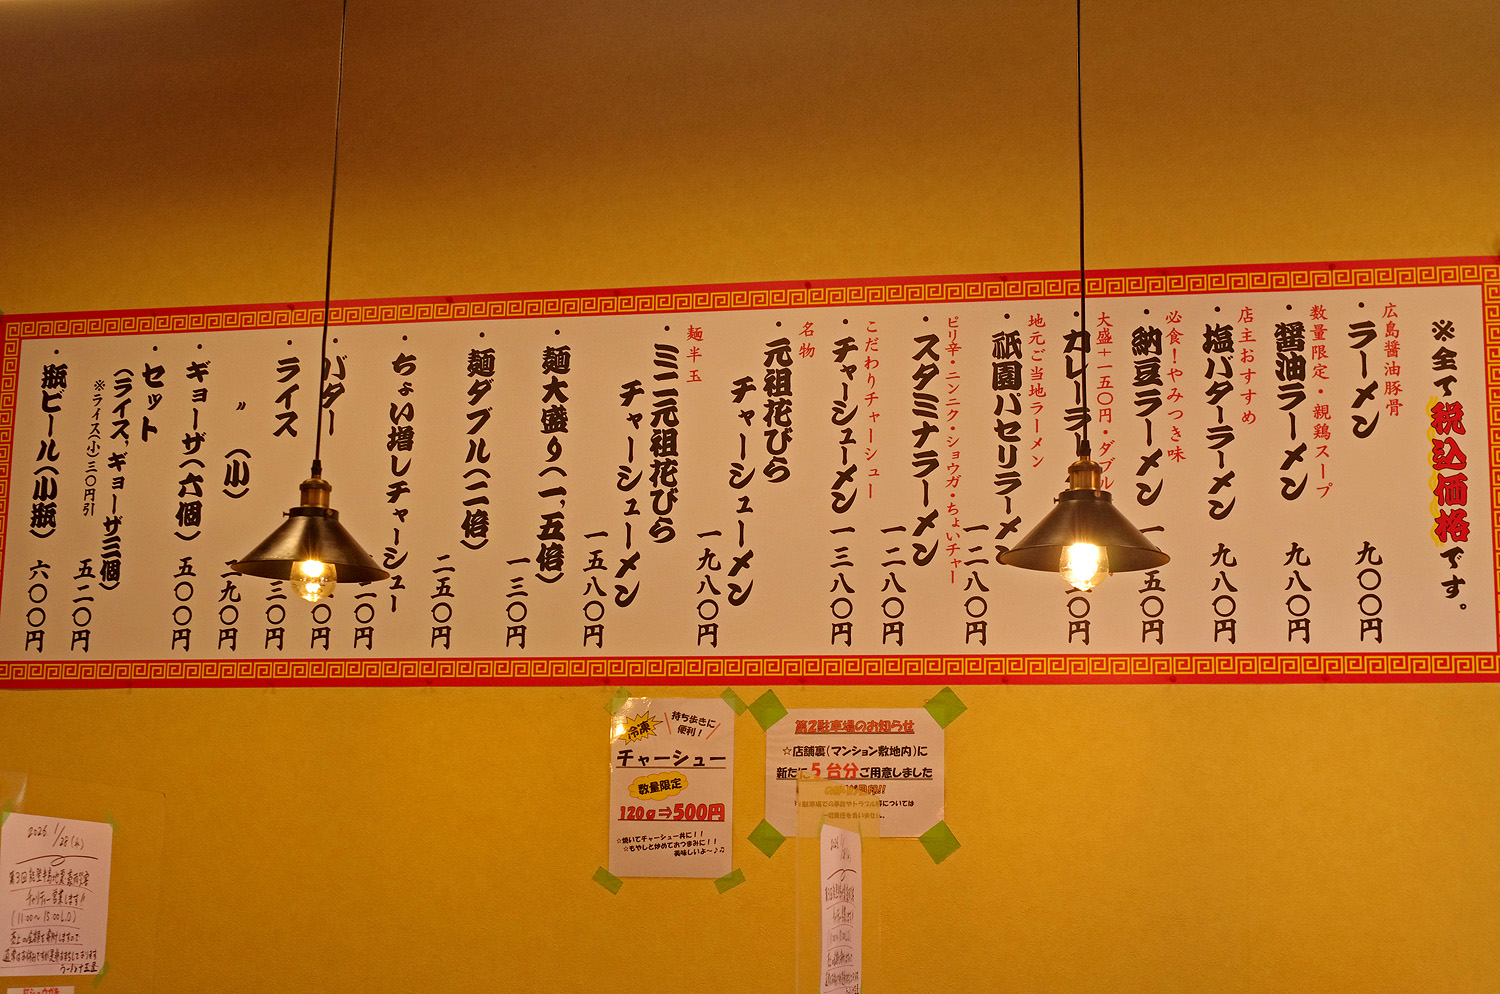 ※全て税込価格です。
広島醤油豚骨
・ラーメン 九〇〇円
数量限定・親鶏スープ
・醤油ラーメン 九八〇円
店主おすすめ
・塩バターラーメン 九八〇円
必食！やみつき味
・納豆ラーメン
五〇円
大盛＋一五〇円・ダブル
カレーラ
〇円
地元ご当地ラーメン
・祇園パセリラーメン 一二八〇円
ピリ辛・ニンニク・ショウガ・ちょいチャー
・スタミナラーメン 一二八〇円
こだわりチャーシュー
・チャーシューメン 一三八〇円
名物
・元祖花びら
チャーシューメン 一九八〇円
麺半玉
・ミニ元祖花びら
チャーシューメン 一五八〇円
・麺大盛り（一，五倍） 一三〇円
・麺ダブル（二倍） 二五〇円
・ちょい増しチャーシュー
〇円
・バター
〇円
・ライス
三〇円
〃 （小）
九〇円
・ギョーザ（六個） 五〇〇円
・セット
（ライス，ギョーザ三個） 五二〇円
※ライス（小）三〇円引
・瓶ビール（小瓶） 六〇〇円
冷凍
持ち歩きに
便利！
チャーシュー
数量限定
120g⇒500円
☆焼いてチャーシュー丼に！！
☆もやしと炒めておつまみに！！
美味しいよ～♪♫
第2駐車場のお知らせ
☆店舗裏（マンション敷地内）に
新たに5台分ご用意しました
駐車場での事故やトラブル等については
一切責任を負いません。
2026. 1/28(水)
第3回 能登半島地震・豪雨災害
チャリティー営業します!!
(11:00～15:00 L.O)
売上の全額を寄附しますので
ラーメン十五里